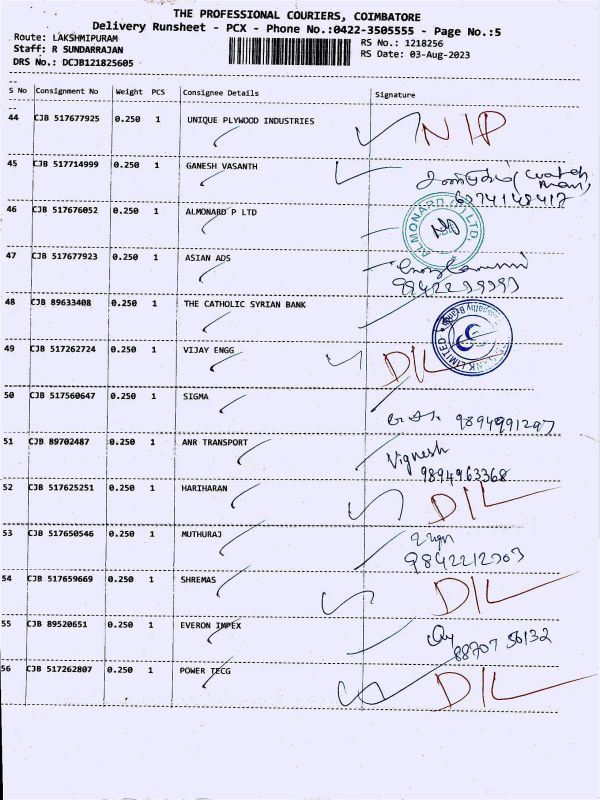 THE PROFESSIONAL COURIERS, COIMBATORE
Delivery Runsheet - PCX - Phone No.:0422-3505555 - Page No.:5
Route: LAKSHMIPURAM RS No.: 1218256
Staff: R SUNDARRAJAN RS Date: 03-Aug-2023
DRS No.: DCJB121825605
S No Consignment No Weight PCS Consignee Details Signature
44 CJB 517677925 0.250 1 UNIQUE PLYWOOD INDUSTRIES NIP
45 CJB 517714999 0.250 1 GANESH VASANTH
46 CJB 517676052 0.250 1 ALMONARD P LTD
47 CJB 517677923 0.250 1 ASIAN ADS
48 CJB 89633408 0.250 1 THE CATHOLIC SYRIAN BANK
49 CJB 517262724 0.250 1 VIJAY ENGG DIL
50 CJB 517560647 0.250 1 SIGMA
9894991297
51 CJB 89702487 0.250 1 ANR TRANSPORT Vignesh
9894963368
52 CJB 517625251 0.250 1 HARIHARAN DIL
53 CJB 517650546 0.250 1 MUTHURAJ
54 CJB 517659669 0.250 1 SHREMAS DIL
55 CJB 89520651 0.250 1 EVERON IMPEX
88707 56132
56 CJB 517262807 0.250 1 POWER TECG DIL